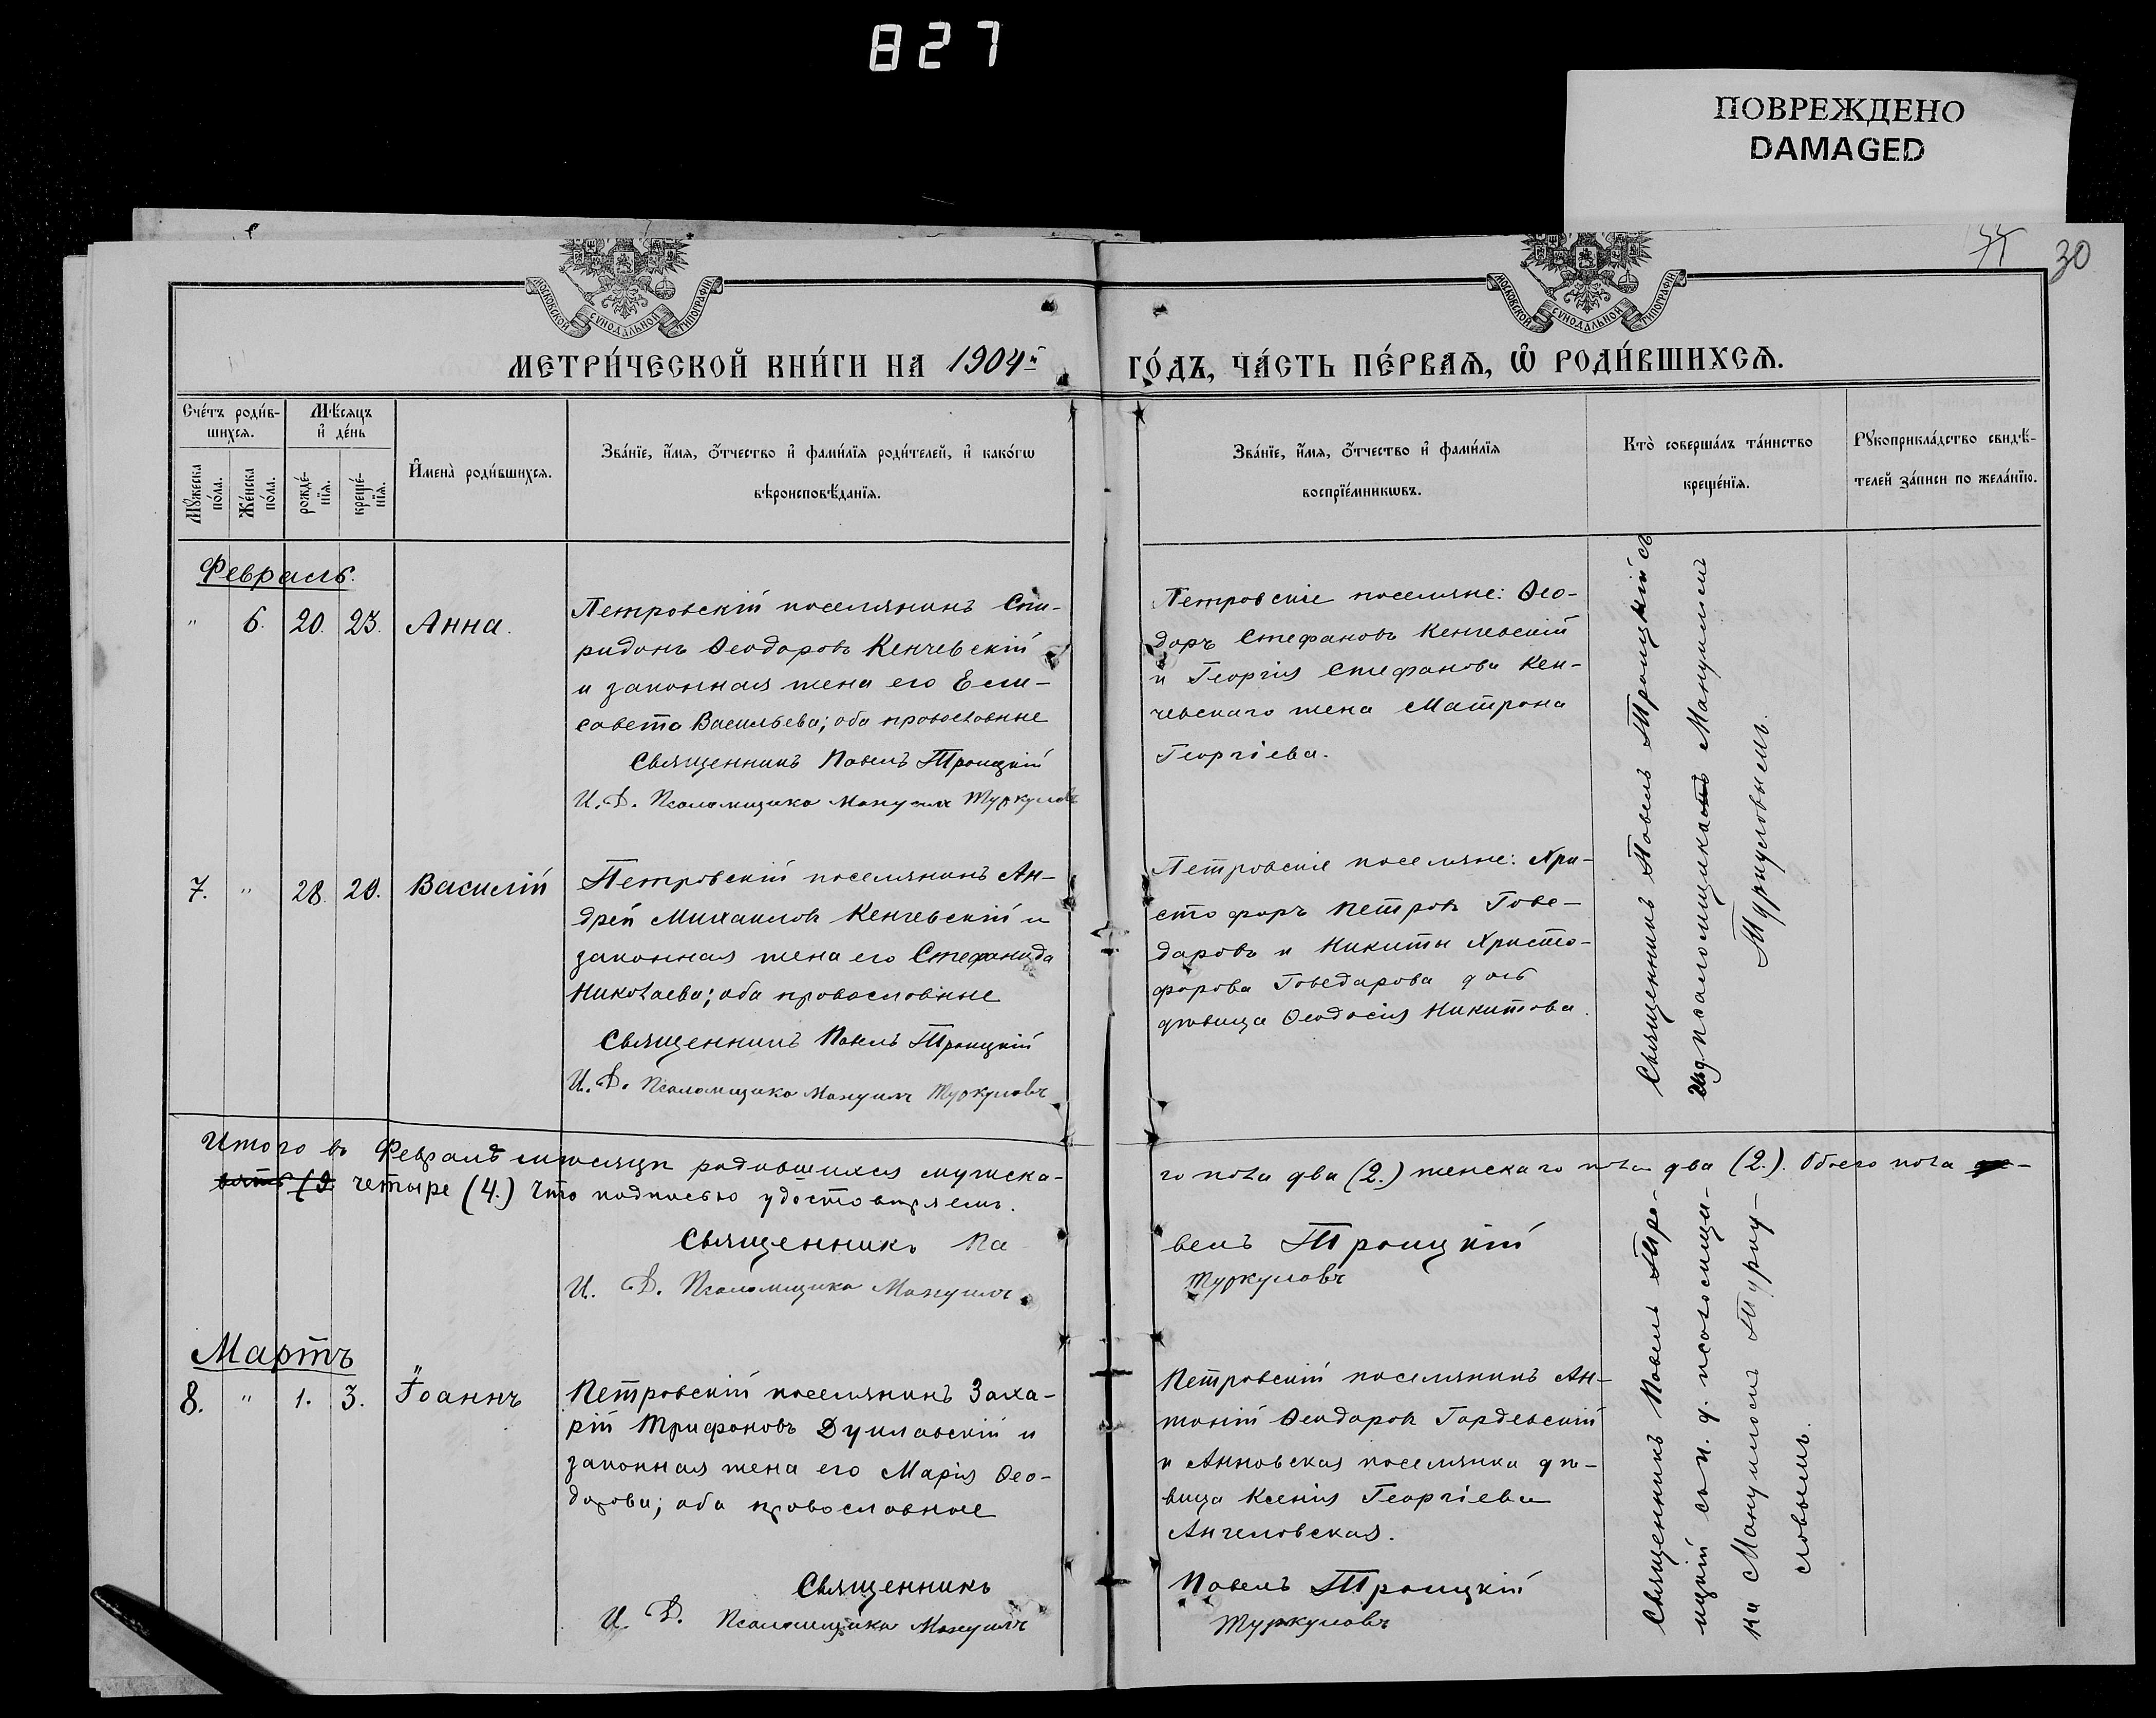 827
ПОВРЕЖДЕНО
DAMAGED
30
МОСКОВСКОЙ СУНОДАЛЬНОЙ ТИПОГРАФІИ
МОСКОВСКОЙ СУНОДАЛЬНОЙ ТИПОГРАФІИ
МЕТРИ́ЧЕСКОЙ КНИ́ГИ НА 1904й ГО́ДЪ, ЧА́СТЬ ПЕ́РВАѦ, Ѡ РОДИ́ВШИХСѦ.
Сче́тъ роди́в-
шихсѧ.
Мꙋ́жеска по́ла.
Же́нска по́ла.
Мѣ́сѧцъ
и҆ де́нь
рожде́-
нїѧ.
креще́-
нїѧ.
И҆мена̀ роди́вшихсѧ.
Зва́нїе, и҆́мѧ, ѻ҆́тчество и҆ фами́лїѧ роди́телей, и҆ како́гѡ
вѣроисповѣ́данїѧ.
Зва́нїе, и҆́мѧ, ѻ҆́тчество и҆ фами́лїѧ
воспрїе́мникѡвъ.
Кто̀ соверша́лъ та́инство
креще́нїѧ.
Рꙋкоприкла́дство свидѣ́-
телей за́писи по жела́нїю.
Февраль.
" 6. 20. 23. Анна.
Петровскій поселянинъ Спи-
ридонъ Ѳеодоровъ Кенчевскій
и законная жена его Ели-
савета Васильева; оба православные
Священникъ Павелъ Троицкій
И. Д. Псаломщика Мануилъ Туркуловъ
Петровскіе поселяне: Ѳео-
доръ Стефановъ Кенчевскій
и Георгія Стефанова Кен-
чевскаго жена Матрона
Георгіева.
7. " 28. 29. Василій
Петровскій поселянинъ Ан-
дрей Михаиловъ Кенчевскій и
законная жена его Стефанида
Николаева; оба православные
Священникъ Павелъ Троицкій
И. Д. Псаломщика Мануилъ Туркуловъ
Петровскіе поселяне: Хри-
стофоръ Петровъ Гове-
даровъ и Никиты Христо-
форова Говедарова дочь
дѣвица Ѳеодосія Никитова.
Священникъ Павелъ Троицкій съ
и д псаломщика Мануиломъ
Туркуловымъ.
Итого въ Февралѣ мѣсяцѣ родившихся мужска-
го пола два (2.) женскаго пола два (2.). Обоего пола
четыре (4.) Что подписью удостовѣряемъ.
Священникъ Па
велъ Троицкій
И. Д. Псаломщика Мануилъ
Туркуловъ
Мартъ
8. " 1. 3. Іоаннъ
Петровскій поселянинъ Заха-
рій Трифоновъ Душлавскій и
законная жена его Марія Ѳео-
дорова; оба православные
Священникъ
И. Д. Псаломщика Мануилъ
Петровскій поселянинъ Ан-
тоній Ѳеодоровъ Гордевскій
и Анновская поселянка дѣ-
вица Ксенія Георгіева
Ангеловская.
Павелъ Троицкій
Туркуловъ
Священникъ Павелъ Тро-
ицкій съ и. д. псаломщи-
ка Мануиломъ Турку-
ловымъ.